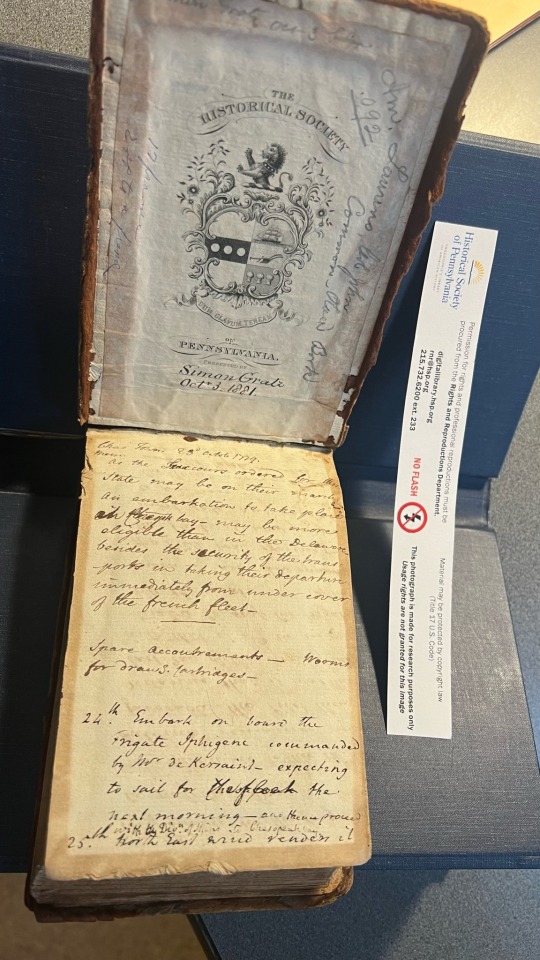 THE
HISTORICAL SOCIETY
OF
PENNSYLVANIA.
PRESENTED BY
Simon Gratz
Oct. 3. 1881.
Common Place Book
Char Town 23d Octob. 1779.
Mem
as the Succours ordered for this
State may be on their march
an embarkation to take place
in bay - may be more
eligible than in the Delaware
besides the security of the trans
ports in taking their departure
immediately from under cover
of the french fleet -
Spare accoutrements - Worms
for drawg. Cartridges -
24.th Embark on board the
Frigate Iphigene commanded
by Mr. de Kersaint - expecting
to sail for Chesapeak the
next morning - and thence proceed
with the to Chesapeak bay
25.th North East wind renders it
Historical Society
of Pennsylvania
Permission for rights and professional reproductions must be
procured from the Rights and Reproductions Department.
digitallibrary.hsp.org
rnr@hsp.org
215.732.6200 ext. 233
NO FLASH
Material may be protected by copyright law
(Title 17 U.S. Code)
This photograph is made for research purposes only
Usage rights are not granted for this image